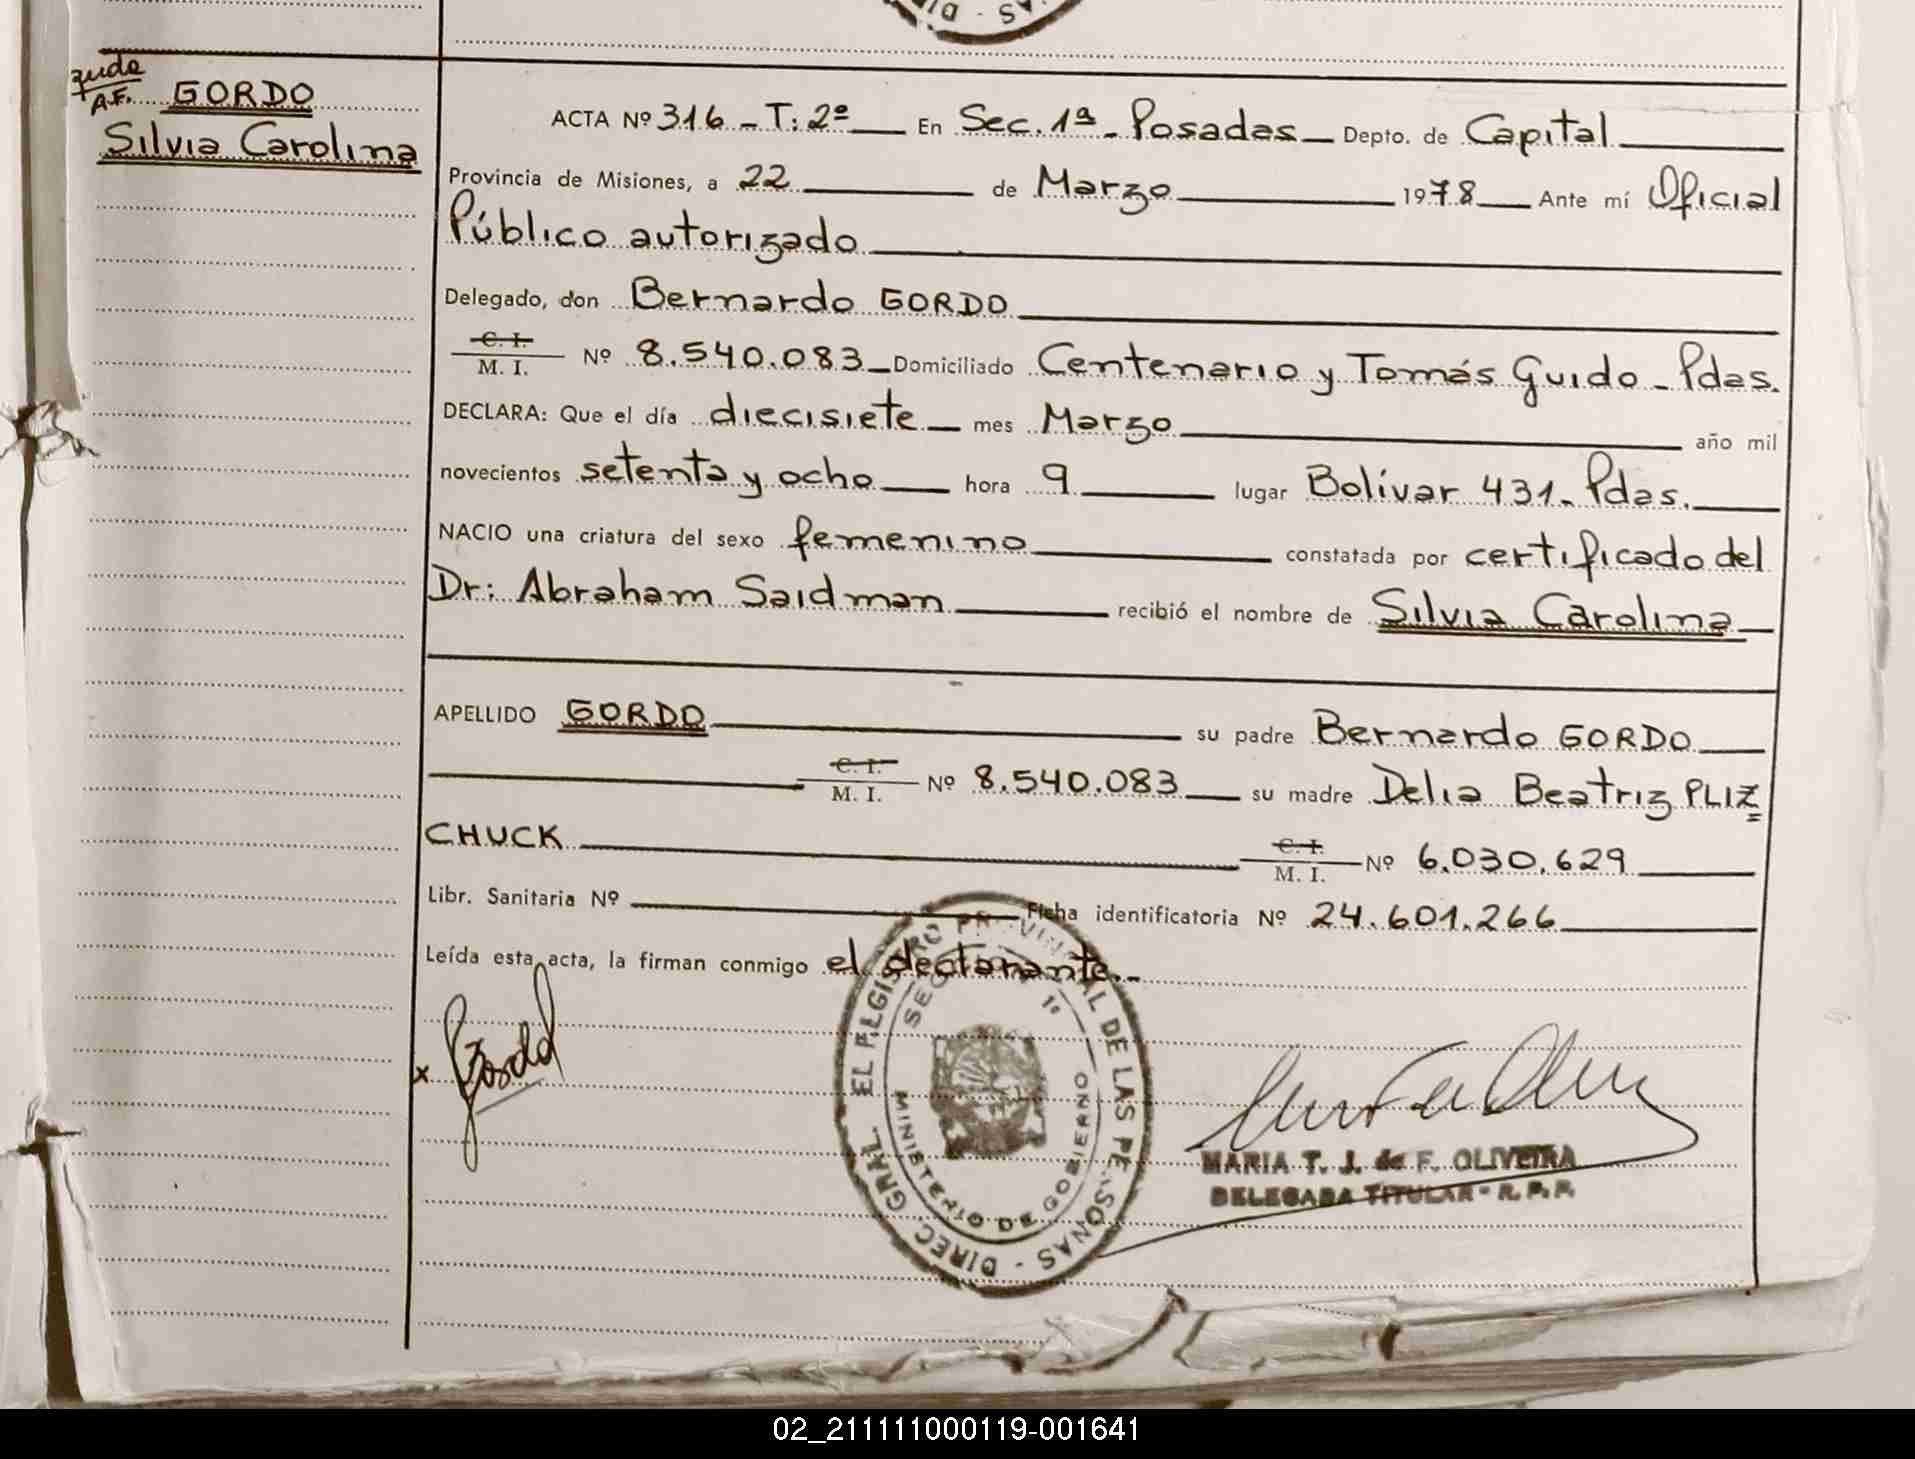 GORDO
Silvia Carolina
ACTA Nº 316 - T: 2º En Sec. 1ª - Posadas Depto. de Capital
Provincia de Misiones, a 22 de Marzo 1978 Ante mí Oficial
Público autorizado
Delegado, don Bernardo GORDO
C. I.
M. I. Nº 8.540.083 Domiciliado Centenario y Tomás Guido - Pdas.
DECLARA: Que el día diecisiete mes Marzo año mil
novecientos setenta y ocho hora 9 lugar Bolívar 431 - Pdas.
NACIO una criatura del sexo femenino constatada por certificado del
Dr: Abraham Saidman recibió el nombre de Silvia Carolina
APELLIDO GORDO su padre Bernardo GORDO
C. I.
M. I. Nº 8.540.083 su madre Delia Beatriz PLIZ=
CHUCK C. I.
M. I. Nº 6.030.629
Libr. Sanitaria Nº Ficha identificatoria Nº 24.601.266
Leída esta acta, la firman conmigo el declarante.-
x Gordo
DIREC. GRAL. DEL REGISTRO PROVINCIAL DE LAS PERSONAS
MINISTERIO DE GOBIERNO
MARIA T. J. de F. OLIVEIRA
DELEGADA TITULAR - R. P. P.
02_211111000119-001641